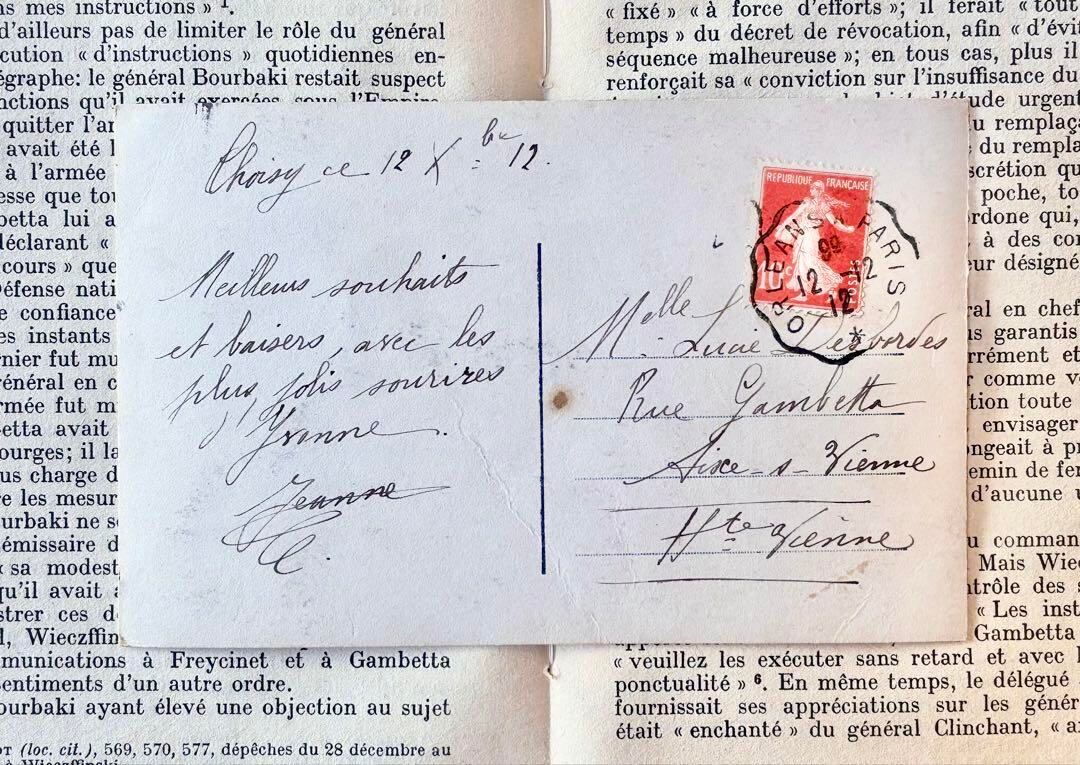 ns mes instructions » 1.
d'ailleurs pas de limiter le rôle du général
cution « d'instructions » quotidiennes en-
égraphe: le général Bourbaki restait suspect
nctions qu'il avait exercées sous l'Empire
quitter l'ar
avait été l
à l'armée
esse que tou
betta lui a
déclarant «
cours » que
Défense nati
e confiance
es instants
rnier fut mu
énéral en c
rmée fut m
etta avait
ourges; il la
us charge d
re les mesur
urbaki ne s
émissaire d
« sa modest
qu'il avait a
strer ces d
l, Wieczffin
mmunications à Freycinet et à Gambetta
sentiments d'un autre ordre.
ourbaki ayant élevé une objection au sujet
OT (loc. cit.), 569, 570, 577, dépêches du 28 décembre au
à Wieczffinski
Choisy ce 12 Xbre 12.
Meilleurs souhaits
et baisers, avec les
plus jolis sourires
Yvonne.
Jeanne
REPUBLIQUE FRANÇAISE
10c
POSTES
ORLEANS A PARIS
99
12 - 12
12
Melle Lucie Desbordes
Rue Gambetta
Aixe-s-Vienne
Hte Vienne
« fixé » « à force d'efforts »; il ferait « tout
temps » du décret de révocation, afin « d'évi
séquence malheureuse »; en tous cas, plus il
renforçait sa « conviction sur l'insuffisance du
d'étude urgent
u remplaça
du rempla
scrétion qu
poche, to
ordone qui,
à des con
eur désigné
al en chef
us garantis
rrément et
comme v
tion toute
envisager
ngeait à pr
emin de fer
d'aucune u
u comman
Mais Wiec
ntrôle des s
« Les inst
Gambetta
« veuillez les exécuter sans retard et avec l
ponctualité » 6. En même temps, le délégué
fournissait ses appréciations sur les génér
était « enchanté » du général Clinchant, « a